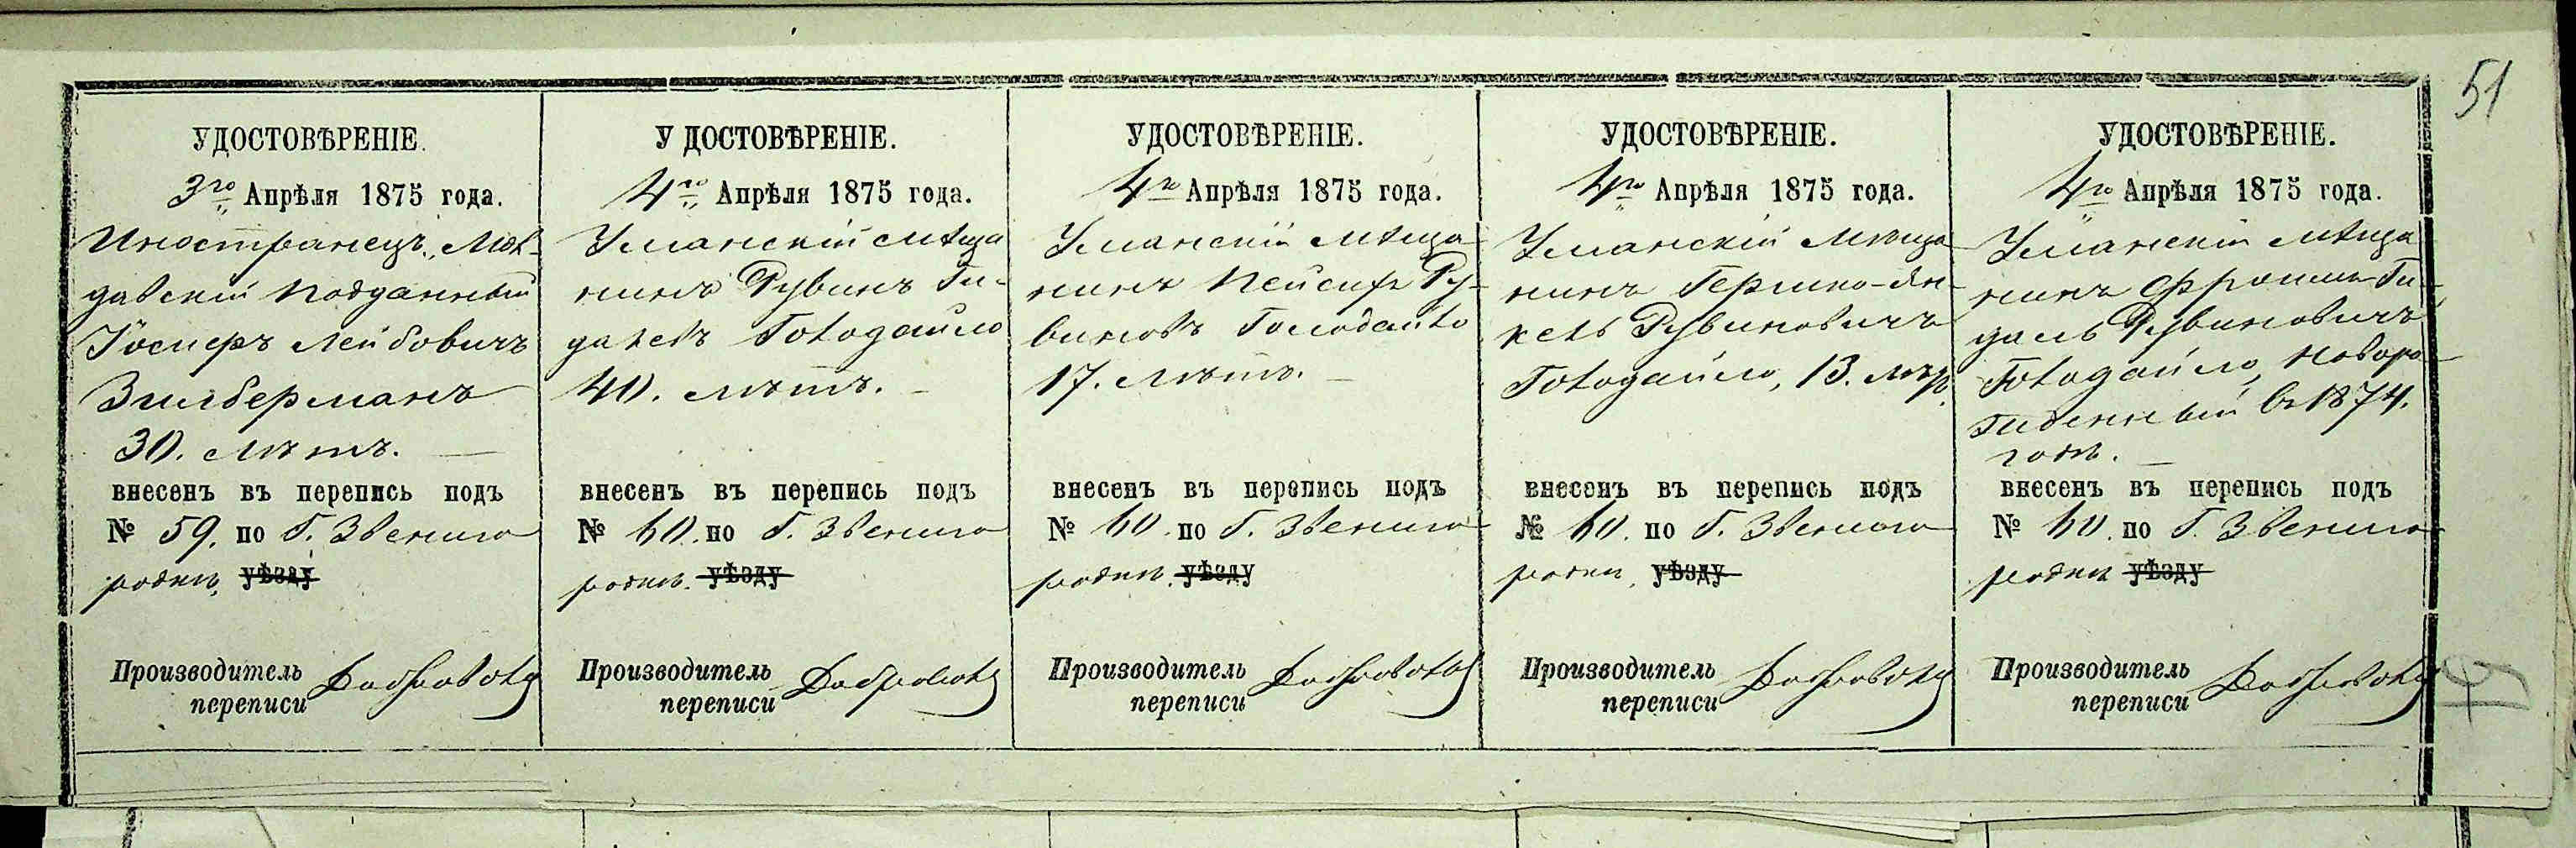 51
УДОСТОВѢРЕНІЕ.
3го Апрѣля 1875 года.
Иностранецъ, Мол-
давскій подданный
Іосперъ Лейбовичъ
Зильберманъ
30. лѣтъ. —
внесенъ въ перепись подъ
№ 59. по г. Звениго
родкѣ, уѣзду
Производитель
переписи
У ДОСТОВѢРЕНІЕ.
4го Апрѣля 1875 года.
Уманскій мѣща
нинъ Рувинъ Ги-
далевъ Голодайло
40. лѣтъ. —
внесенъ въ перепись подъ
№ 60. по г. Звениго
родкѣ. уѣзду
Производитель
переписи
УДОСТОВѢРЕНІЕ.
4го Апрѣля 1875 года.
Уманскій мѣща
нинъ Пейсихъ Ру-
виновъ Голодайло
17. лѣтъ. —
внесенъ въ перепись подъ
№ 60. по г. Звениго
родкѣ. уѣзду
Производитель
переписи
УДОСТОВѢРЕНІЕ.
4го Апрѣля 1875 года.
Уманскій мѣща
нинъ Гершко-Ян-
кель Рувиновичъ
Голодайло, 13. лѣтъ.
внесенъ въ перепись подъ
№ 60. по г. Звениго
родкѣ, уѣзду
Производитель
переписи
УДОСТОВѢРЕНІЕ.
4го Апрѣля 1875 года.
Уманскій мѣща
нинъ Фроимъ-Ги-
даль Рувиновичъ
Голодайло, новоро
жденный въ 1874.
годѣ. —
внесенъ въ перепись подъ
№ 60. по г. Звениго
родкѣ уѣзду
Производитель
переписи